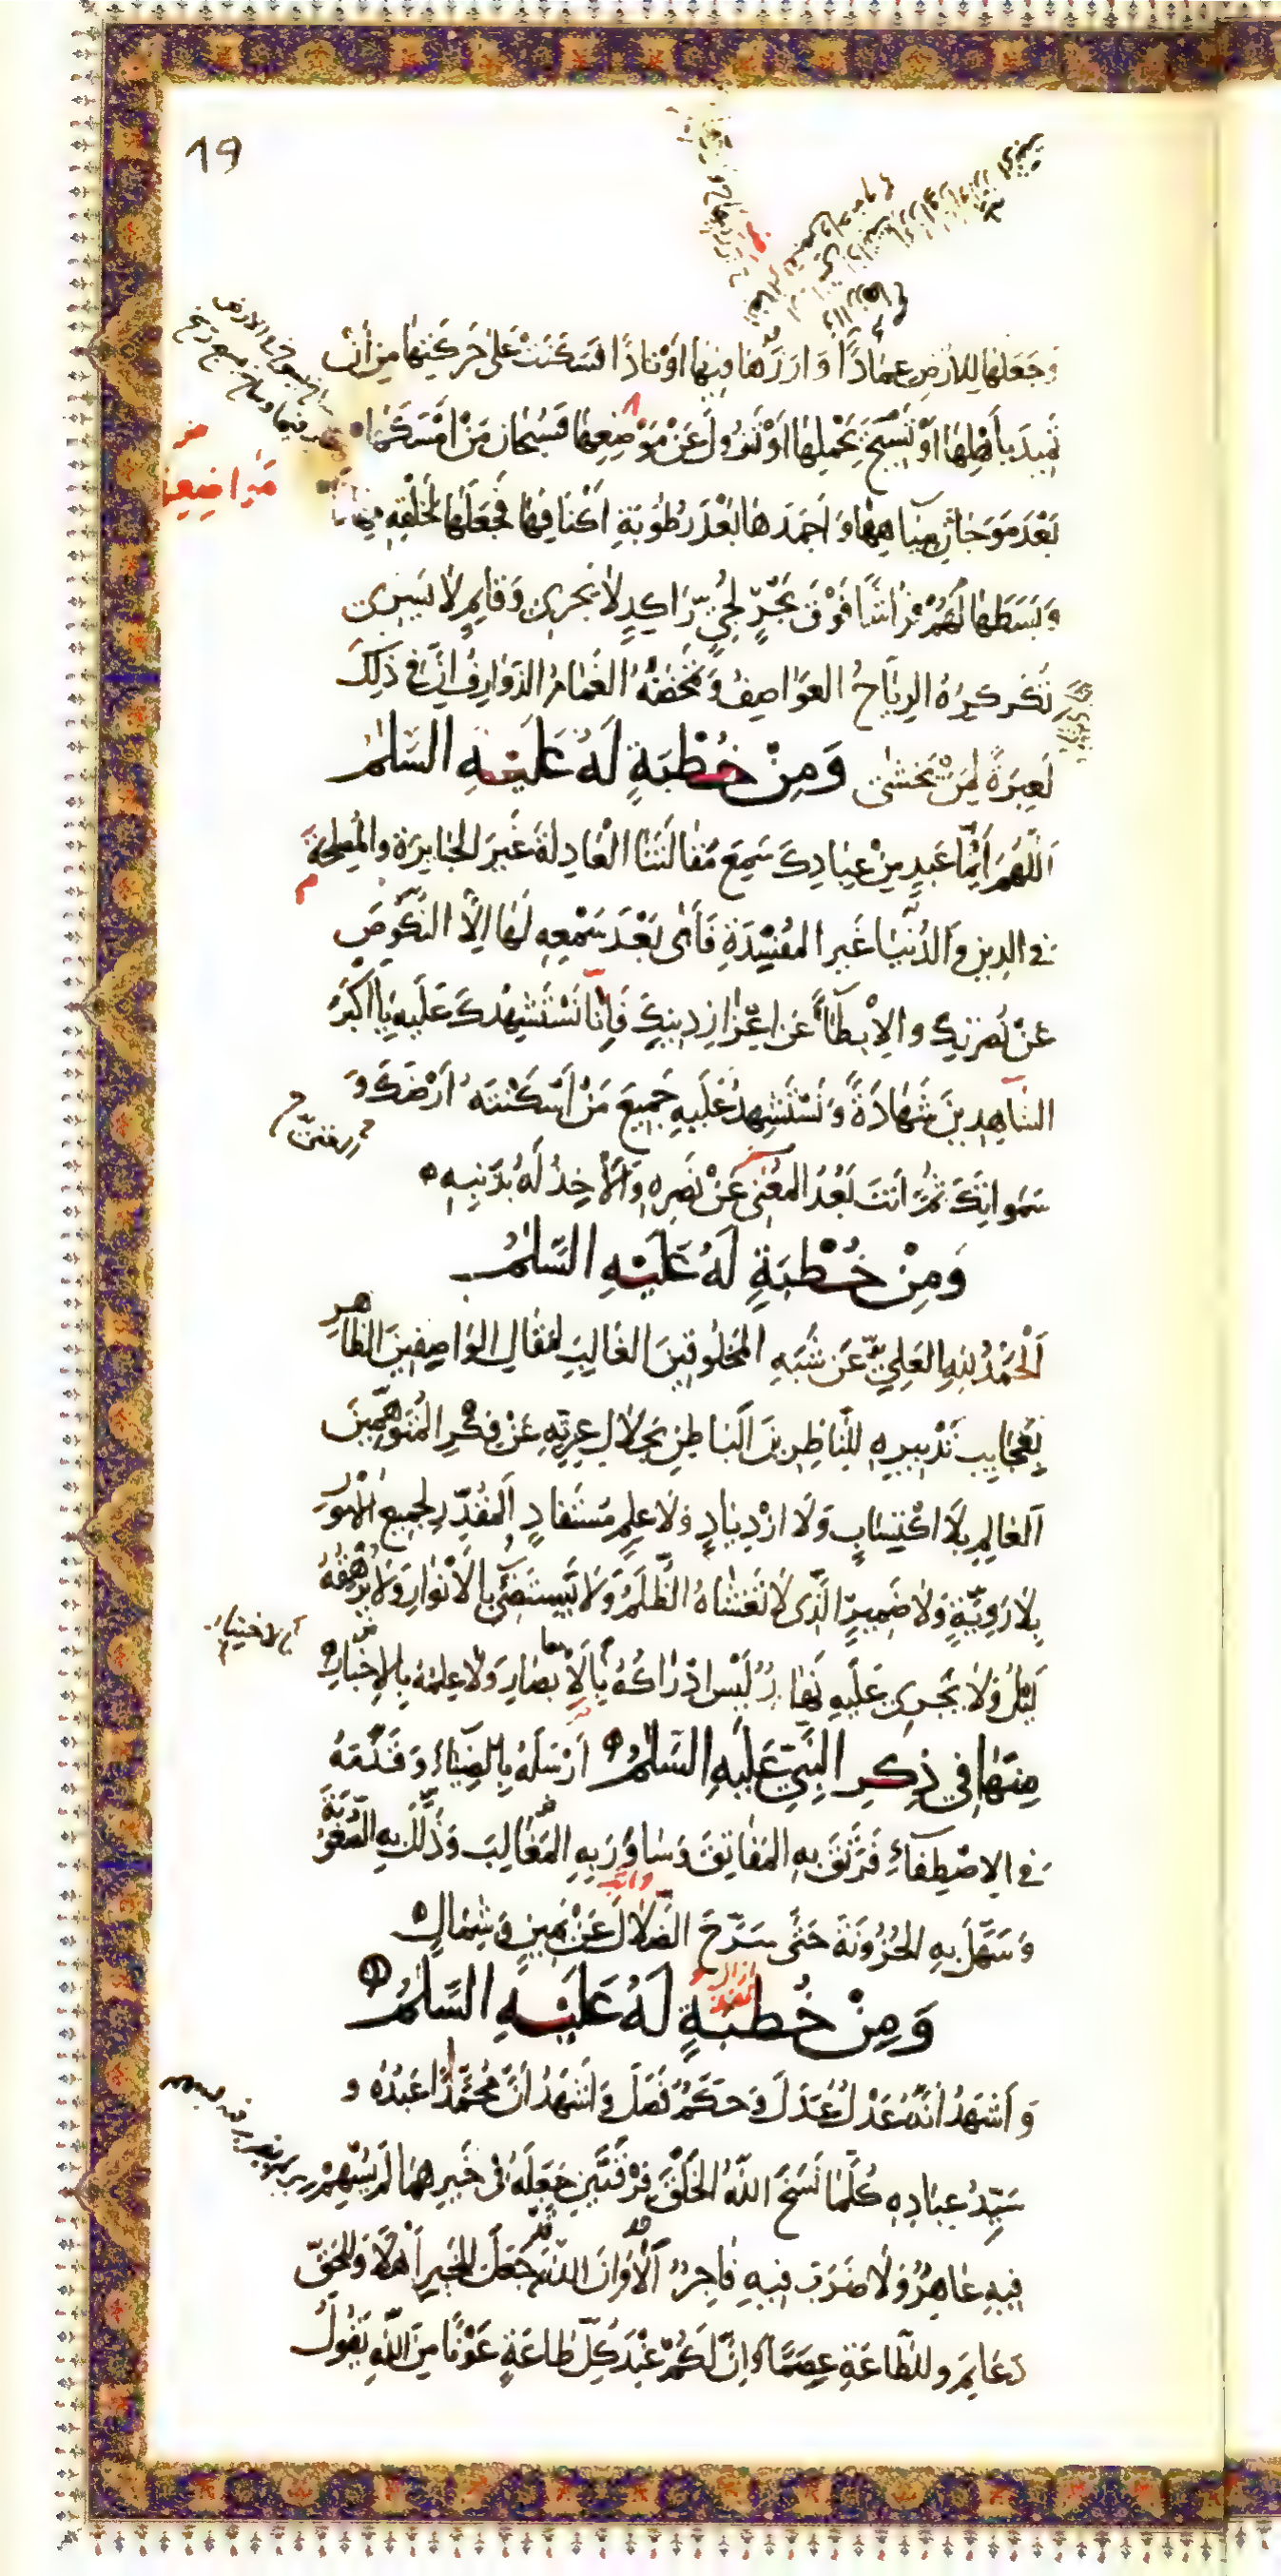 19
وَجَعَلَهَا لِلْاَرْضِ عِمَادًا وَ اَرَزَّهَا فِيهَا اَوْتَادًا فَسَكَنَتْ عَلٰى حَرَكَتِهَا مِنْ اَنْ
تَمِيدَ بِاَهْلِهَا اَوْ تَسِيخَ بِحَمْلِهَا اَوْ تَزُولَ عَنْ مَوْضِعِهَا فَسُبْحَانَ مَنْ اَمْسَكَهَا
مَوَاضِعِهَا
بَعْدَ مَوَجَانِ مِيَاهِهَا وَ اَجْمَدَهَا بَعْدَ رُطُوبَةِ اَكْنَافِهَا فَجَعَلَهَا لِخَلْقِهِ مِهَادًا
وَ بَسَطَهَا لَهُمْ فِرَاشًا فَوْقَ بَحْرٍ لُجِّيٍّ رَاكِدٍ لَا يَجْرِي وَ قَايِمٍ لَا يَسْرِي
تُكَرْكِرُهُ الرِّيَاحُ العَوَاصِفُ وَ تَمْخَضُهُ الغَمَامُ الذَّوَارِفُ اِنَّ فِي ذٰلِكَ
لَعِبْرَةً لِمَنْ يَخْشٰى وَمِنْ خُطْبَةٍ لَهُ عَلَيْهِ السَّلٰمُ
اَللّٰهُمَّ اَيُّمَا عَبْدٍ مِنْ عِبَادِكَ سَمِعَ مَقَالَتَنَا الْعَادِلَةَ غَيْرَ الْجَايِرَةِ وَالْمُصْلِحَةَ
فِي الدِّينِ وَ الدُّنْيَا غَيْرَ المُفْسِدَةِ فَاَبٰى بَعْدَ سَمْعِهِ لَهَا اِلَّا النُّكُوصَ
عَنْ نُصْرَتِكَ وَ الْاِبْطَاءَ عَنْ اِعْزَازِ دِينِكَ فَاِنَّا نَسْتَشْهِدُكَ عَلَيْهِ يَا اَكْبَرَ
الشَّاهِدِينَ شَهَادَةً وَ نَسْتَشْهِدُ عَلَيْهِ جَمِيعَ مَنْ اَسْكَنْتَهُ اَرْضَكَ وَ
سَمٰوَاتِكَ ثُمَّ اَنْتَ بَعْدُ المُغْنِي عَنْ نَصْرِهِ وَ الْاٰخِذُ لَهُ بِذَنْبِهِ
وَمِنْ خُطْبَةٍ لَهُ عَلَيْهِ السَّلٰمُ
اَلْحَمْدُ لِلّٰهِ العَلِيِّ عَنْ شَبَهِ المَخْلُوقِينَ الغَالِبِ لِمَقَالِ الوَاصِفِينَ الظَّاهِرِ
بِعَجَايِبِ تَدْبِيرِهِ لِلنَّاظِرِينَ اَلبَاطِنِ بِجَلَالِ عِزَّتِهِ عَنْ فِكْرِ المُتَوَهِّمِينَ
اَلْعَالِمِ بِلَا اكْتِسَابٍ وَلَا ازْدِيَادٍ وَلَا عِلْمٍ مُسْتَفَادٍ اَلمُقَدِّرِ لِجَمِيعِ الْاُمُورِ
بِلَا رَوِيَّةٍ وَلَا ضَمِيرٍ الَّذِي لَا تَغْشَاهُ الظُّلَمُ وَلَا يَسْتَضِيءُ بِالْاَنْوَارِ وَلَا يَرْهَقُهُ
لَيْلٌ وَلَا يَجْرِي عَلَيْهِ نَهَارٌ لَيْسَ اِدْرَاكُهُ بِالْاَبْصَارِ وَلَا عِلْمُهُ بِالْاِخْبَارِ
بالاختيار
مِنْهَا فِي ذِكْرِ النَّبِيِّ عَلَيْهِ السَّلٰمُ اَرْسَلَهُ بِالضِّيَاءِ وَ قَدَّمَهُ
فِي الِاصْطِفَاءِ فَرَتَقَ بِهِ المَفَاتِقَ وَ سَاوَرَ بِهِ المُغَالِبَ وَ ذَلَّلَ بِهِ الصُّعُوبَةَ
وَ سَهَّلَ بِهِ الحُزُونَةَ حَتّٰى سَرَّحَ الضَّلَالَ عَنْ يَمِينٍ وَ شِمَالٍ
وَ مِنْ خُطْبَةٍ لَهُ عَلَيْهِ السَّلٰمُ
وَ اَشْهَدُ اَنَّهُ عَدْلٌ عَدَلَ وَ حَكَمٌ فَصَلَ وَ اَشْهَدُ اَنَّ مُحَمَّدًا عَبْدُهُ وَ
سَيِّدُ عِبَادِهِ كُلَّمَا نَسَخَ اللّٰهُ الْخَلْقَ فِرْقَتَيْنِ جَعَلَهُ فِي خَيْرِهِمَا لَمْ يُسْهِمْ
فِيهِ عَاهِرٌ وَلَا ضَرَبَ فِيهِ فَاجِرٌ اَلَا وَاِنَّ اللّٰهَ جَعَلَ لِلْخَيْرِ اَهْلًا وَ لِلْحَقِّ
دَعَايِمَ وَ لِلطَّاعَةِ عِصَمًا وَ اِنَّ لَكُمْ عِنْدَ كُلِّ طَاعَةٍ عَوْنًا مِنَ اللّٰهِ يَقُولُ